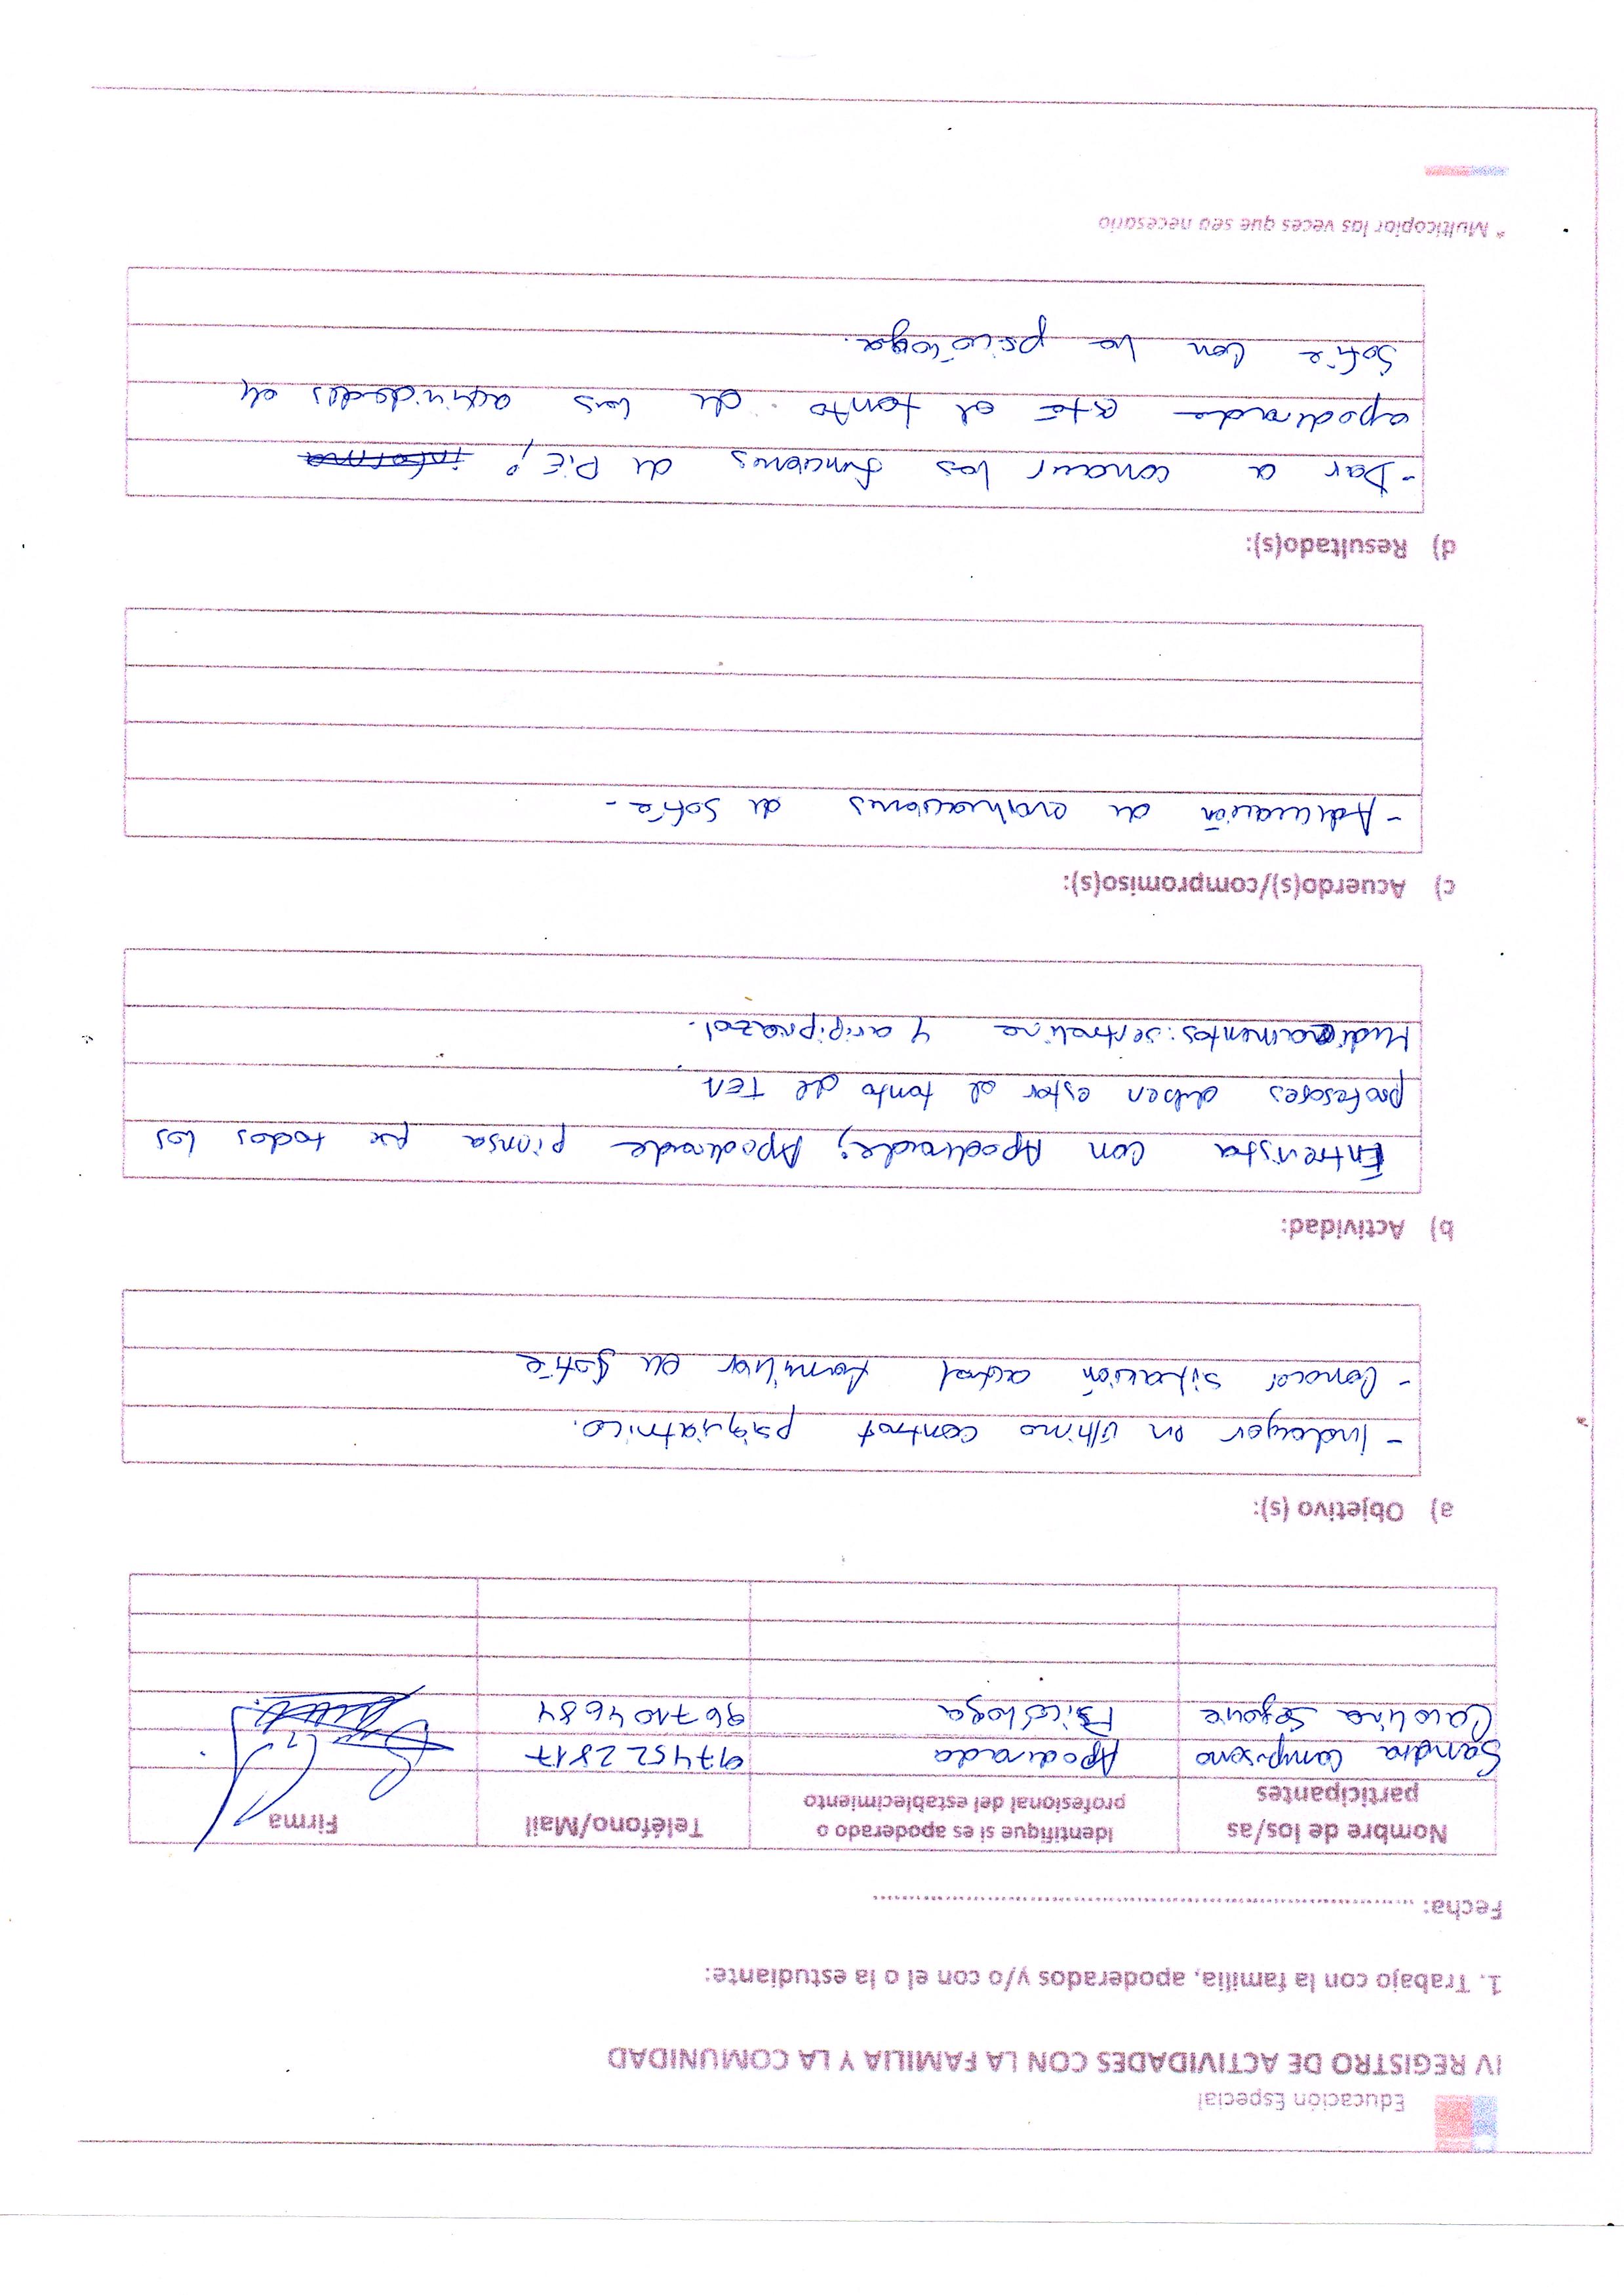 Educación Especial
IV REGISTRO DE ACTIVIDADES CON LA FAMILIA Y LA COMUNIDAD
1. Trabajo con la familia, apoderados y/o con el o la estudiante:
Fecha: ................................................
Nombre de los/as participantes Identifique si es apoderado o profesional del establecimiento Teléfono/Mail Firma
Sandra Campusano Apoderada 974522817
Carolina Psicóloga 967104684
a) Objetivo (s):
- Indagar en último control psiquiátrico.
- Conocer situación actual familiar de Sofía
b) Actividad:
Entrevista con Apoderada; Apoderada piensa que todos los
profesores deben estar al tanto de TEA
Medicamentos: sertralina y aripiprazol.
c) Acuerdo(s)/compromiso(s):
- Adecuación de evaluaciones de Sofía -
d) Resultado(s):
- Dar a conocer las funciones de PIE;
apoderada esté al tanto de las actividades de
Sofía con la psicóloga.
* Multicopiar las veces que sea necesario